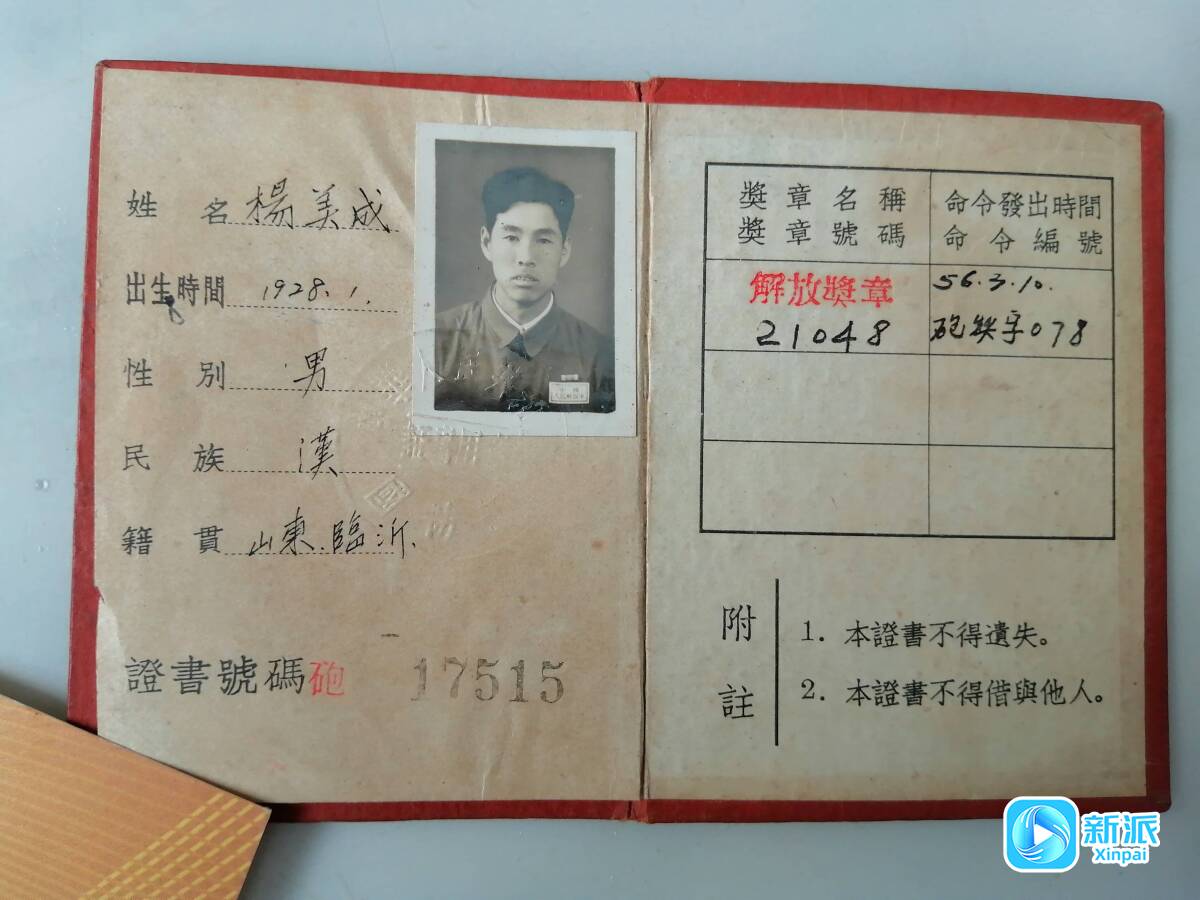 姓名 楊美成
出生時間 1928.1.
性別 男
民族 漢
籍貫 山東.臨沂.
證書號碼 砲 17515
獎章名稱 命令發出時間
獎章號碼 命令編號
解放獎章 56.3.10.
21048 砲 字078
附註
1. 本證書不得遺失。
2. 本證書不得借與他人。
新派
Xinpai